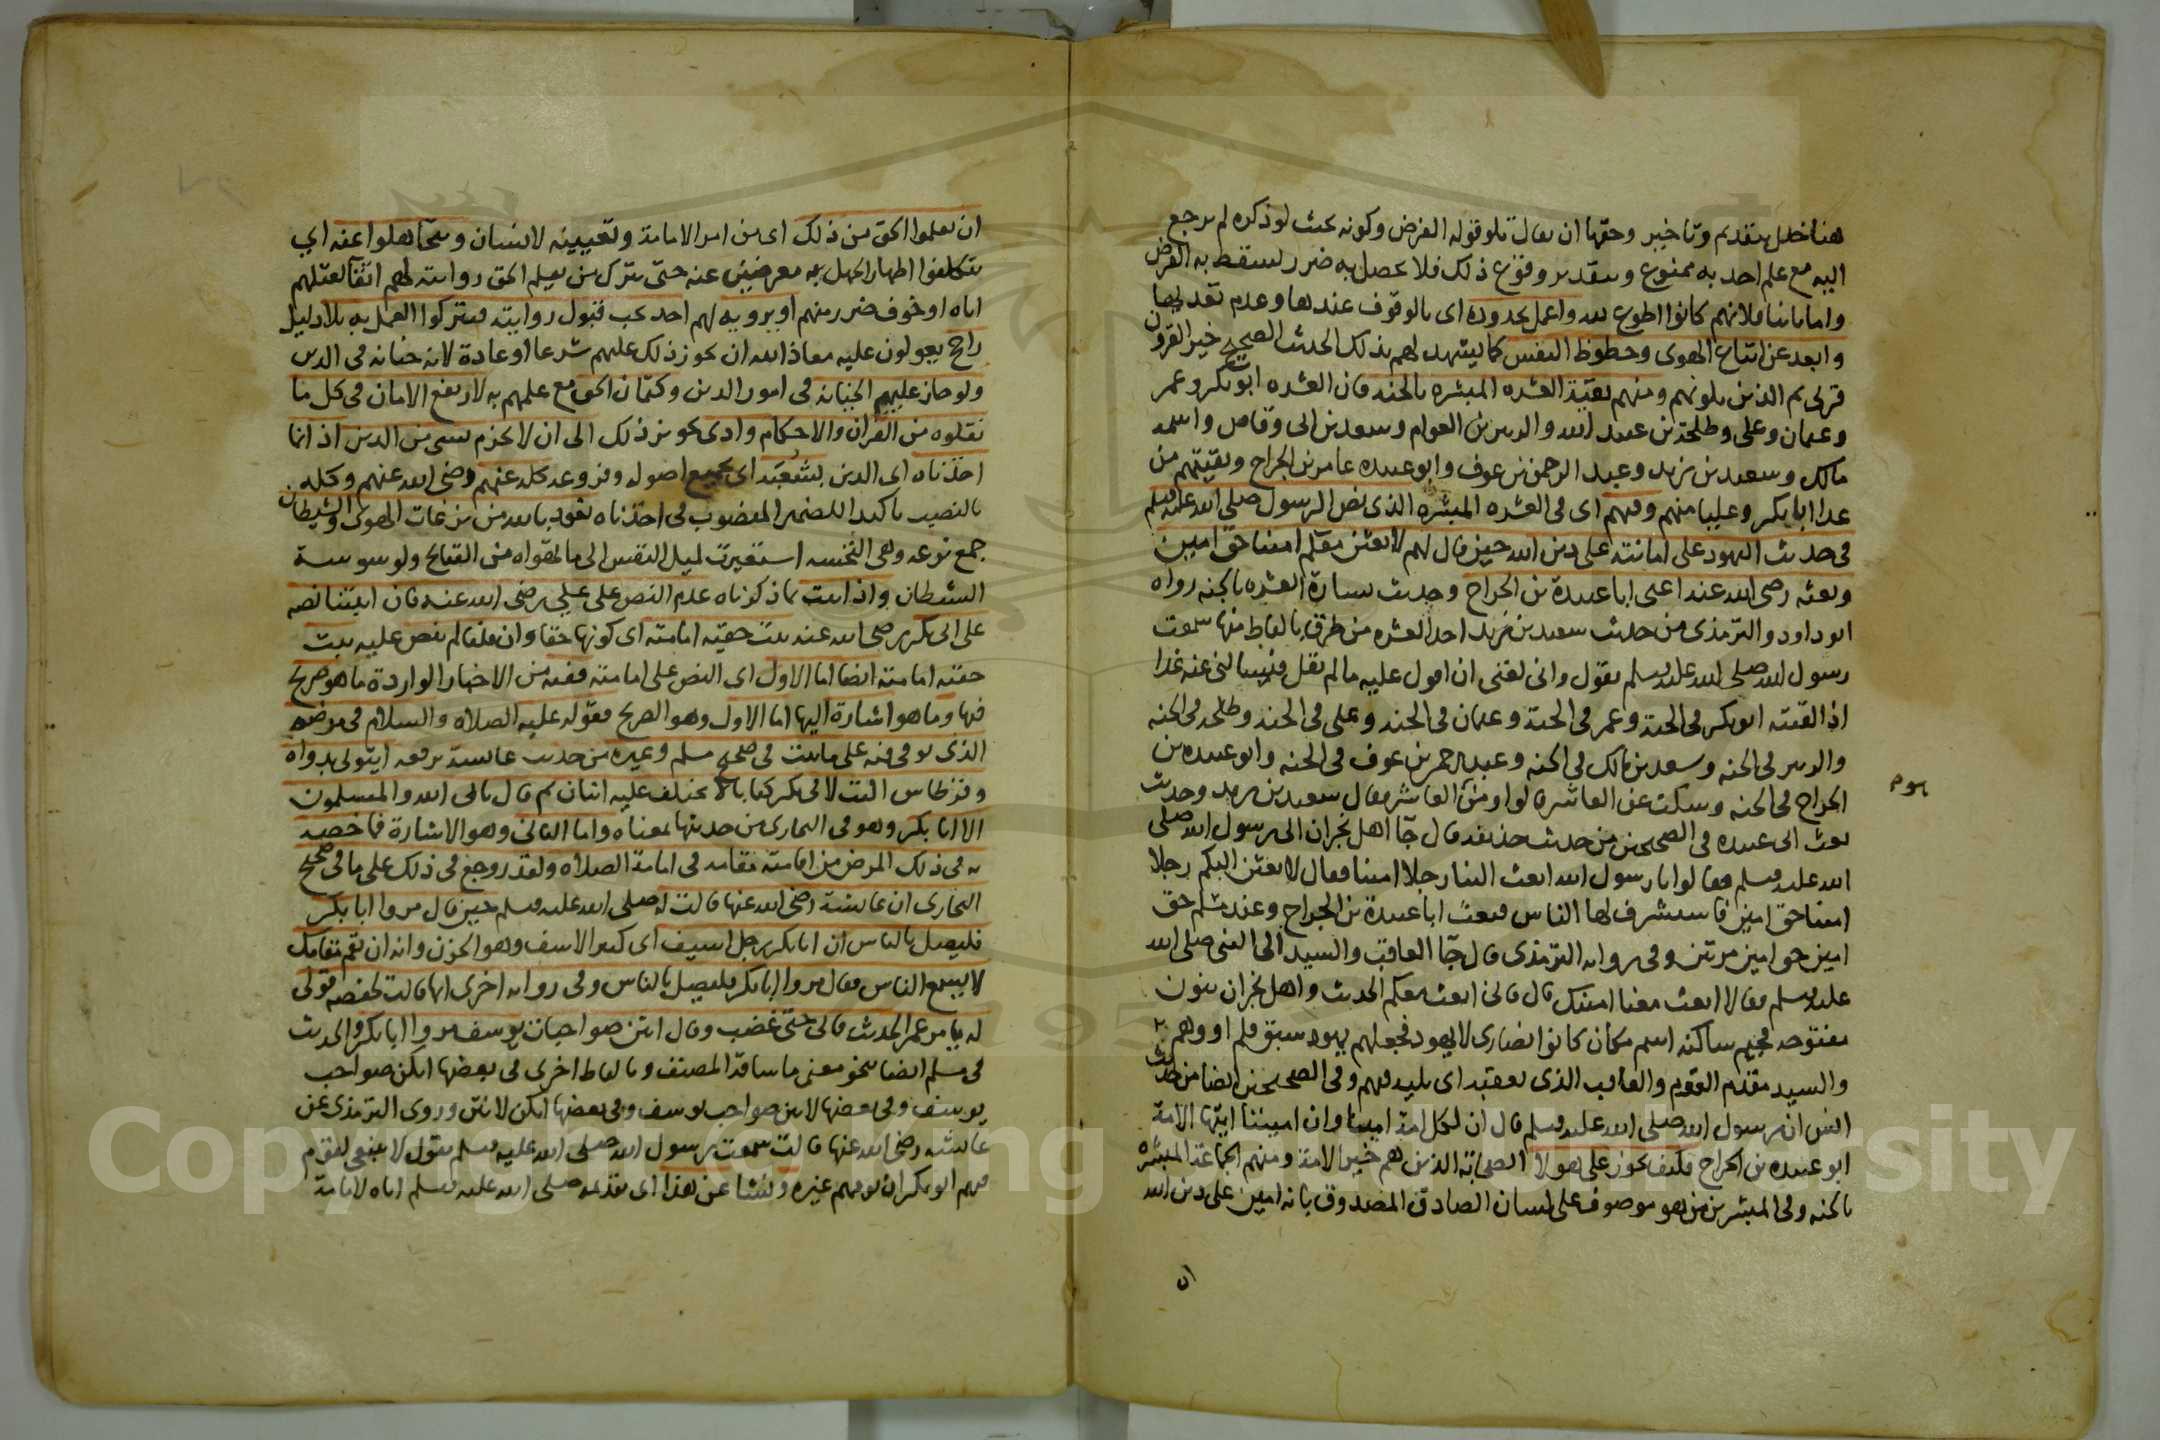 هنا خلل بتقديم وتاخير وحقها ان يقال تلو قوله الفرض وكونه بحيث لو ذكره لم يرجع
اليه مع علم احد به ممنوع وبتقدير وقوع ذلك فلا يحصل به ضرر لسقط به الفرض
واما ثانيا فلانهم كانوا اطوع لله واعمل بحدوده اى بالوقوف عندها وعدم تعديها
وابعد عن اتباع الهوى وحظوظ النفس كما يشهد لهم بذلك الحديث الصحيح خير القرون
قرنى ثم الذين يلونهم ومنهم بقية العشره المبشره بالجنه فان العشره ابوبكر وعمر
وعثمان وعلى وطلحة بن عبيد الله والزبير بن العوام وسعد بن ابى وقاص واسمه
مالك وسعيد بن زيد وعبد الرحمن بن عوف وابو عبيده عامر بن الجراح وبقيتهم من
عدا ابا بكر وعليا منهم وفيهم اى فى العشره المبشره الذى نص الرسول صلى الله عليه وسلم
فى حديث اليهود على امانته على دين الله حين قال لهم لابعثن معكم امينا حق امين
وبعثه رضى الله عنه اعنى ابا عبيدة بن الجراح وحديث بشارة العشره بالجنه رواه
ابو داود والترمذى من حديث سعيد بن زيد احد العشره من طرق بالفاظ منها سمعت
رسول الله صلى الله عليه وسلم يقول وانى لغنى ان اقول عليه ما لم يقل فيسالنى عنه غدا
اذا لقيته ابوبكر فى الجنة وعمر فى الجنة وعثمان فى الجنه وعلى فى الجنه وطلحه فى الجنه
والزبير فى الجنه وسعد بن مالك فى الجنه وعبد الرحمن بن عوف فى الجنه وابو عبيده بن
الجراح فى الجنه وسكت عن العاشر قالوا ومن العاشر فقال سعيد بن زيد وحديث
بعث ابى عبيده فى الصحيحين من حديث حذيفه قال جا اهل نجران الى رسول الله صلى
الله عليه وسلم فقالوا يا رسول الله ابعث الينا رجلا امينا فقال لابعثن اليكم رجلا
امينا حق امين فاستشرف لها الناس فبعث ابا عبيدة بن الجراح وعند مسلم حق
امين حق امين مرتين وفى روايه الترمذى قال جا العاقب والسيد الى النبى صلى الله
عليه وسلم فقالا ابعث معنا امينك قال فانى ابعث معكم الحديث واهل نجران بنون
مفتوحه فجيم ساكنه اسم مكان كانوا نصارى لا يهود فجعلهم يهود سبق قلم او وهم
والسيد مقدم القوم والعاقب الذى يعقبه اى يليه فيهم وفى الصحيحين ايضا من حديث
انس ان رسول الله صلى الله عليه وسلم قال ان لكل امة امينا وان اميننا ايتها الامة
ابو عبيده بن الجراح فكيف يجوز على هولا الصحابة الذين هم خير الامة ومنهم الجماعة المبشره
بالجنه وفى المبشرين من هو موصوف على لسان الصادق المصدوق بانه امين على دين الله
ان
ان يعلموا الحق من ذلك اى من امر الامامة وتعيينه لانسان ويتجاهلوا عنه اي
يتكلفوا اظهار الجهل به معرضين عنه حتى يترك من يعلم الحق روايته لهم اتقا لقتلهم
اياه او خوف ضرر منهم او يرويه لهم احد يجب قبول روايته فيتركوا العمل به بلا دليل
راجح يعولون عليه معاذ الله ان يجوز ذلك عليهم شرعا او عادة لانه خيانه فى الدين
ولو جاز عليهم الخيانه فى امور الدين وكتمان الحق مع علمهم به لارتفع الامان فى كل ما
نقلوه من القران والاحكام وادى تجويز ذلك الى ان لا يجزم بشى من الدين اذ انما
اخذناه اى الدين بشعبه اى بجميع اصوله وفروعه كله عنهم رضى الله عنهم وكله
بالنصب تاكيدا للضمير المنصوب فى اخذناه نعوذ بالله من نزعات الهوى والشيطان
جمع نزعه وهى النخسه استعيرت لميل النفس الى ما تهواه من القبائح ولوسوسة
الشيطان واذا ثبت بما ذكرناه عدم النص على علي رضى الله عنه فان اثبتنا نصه
على ابى بكر رضى الله عنه ثبت حقيه امامته اى كونها حقا وان قلنا لم ينص عليه ثبت
حقيه امامته ايضا اما الاول اى النص على امامته ففيه من الاخبار الواردة ما هو صريح
فيها وما هو اشارة اليها اما الاول وهو الصريح فقوله عليه الصلاه والسلام فى مرضه
الذى توفى فيه على ما ثبت فى صحيح مسلم وغيره من حديث عايشه ترفعه ايتونى بدواة
وقرطاس اكتب لابى بكر كتابا لا يختلف عليه اثنان ثم قال يابى الله والمسلمون
الا ابا بكر وهو فى البخارى من حديثها بمعناه واما الثانى وهو الاشارة فما خصه
به فى ذلك المرض من اقامته مقامه فى امامة الصلاه ولقد روجع فى ذلك على ما فى صحيح
البخارى ان عايشة رضى الله عنها قالت له صلى الله عليه وسلم حين قال مروا ابا بكر
فليصل بالناس ان ابا بكر رجل اسيف اى كثير الاسف وهو الحزن وانه ان يقم مقامك
لا يسمع الناس فقال مروا ابا بكر فليصل بالناس وفى روايه اخرى انها قالت لحفصه قولى
له يامر عمر الحديث فابى حتى غضب وقال انتن صواحبات يوسف مروا ابا بكر والحديث
فى مسلم ايضا بنحو معنى ما ساقه المصنف وبالفاظ اخرى فى بعضها انكن صواحب
يوسف وفى بعضها لانتن صواحب يوسف وفى بعضها انكن لانتن وروى الترمذى عن
عايشه رضى الله عنها قالت سمعت رسول الله صلى الله عليه وسلم يقول لا ينبغى لقوم
فيهم ابوبكر ان يومهم غيره ونشا عن هذا اى تقديمه صلى الله عليه وسلم اياه لامامة